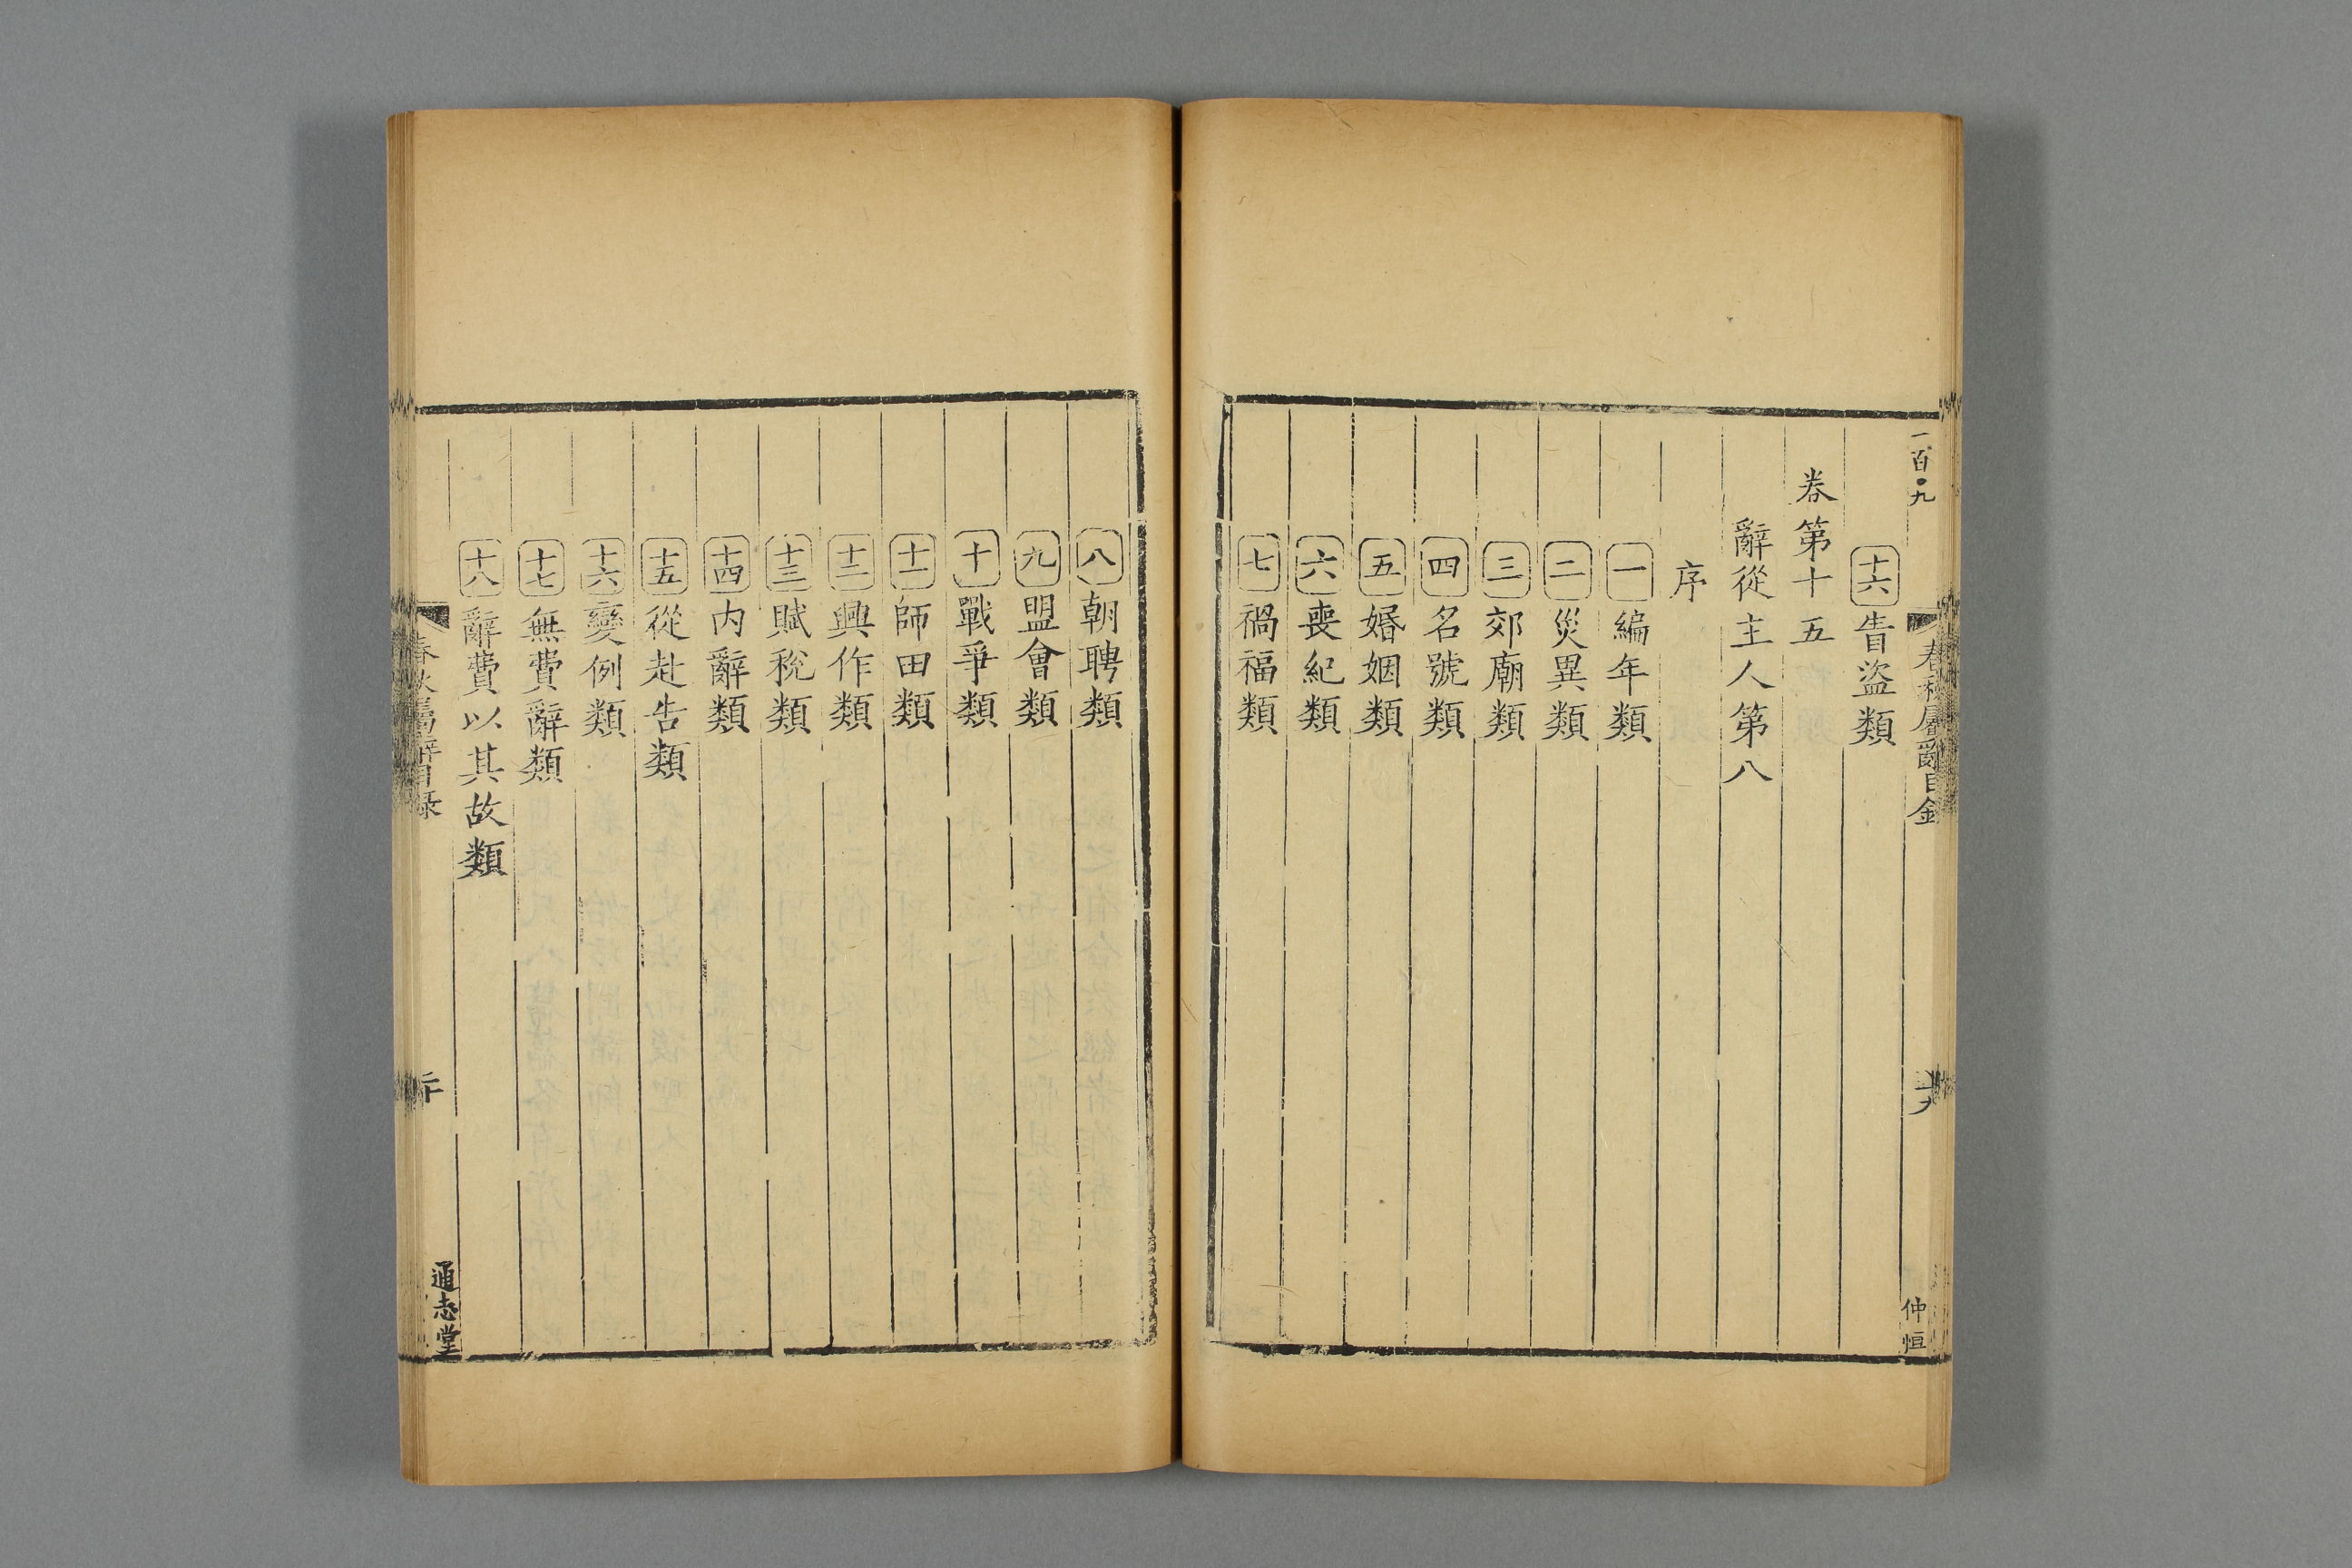 一百九
春秋屬辭目錄
仲恒
十六眚盜類
卷第十五
辭從主人第八
序
一編年類
二災異類
三郊廟類
四名號類
五婚姻類
六喪紀類
七禍福類
八朝聘類
九盟會類
十戰爭類
十一師田類
十二興作類
十三賦稅類
十四内辭類
十五從赴告類
十六變例類
十七無費辭類
十八辭費以其故類
春秋屬辭目錄
二十
通志堂